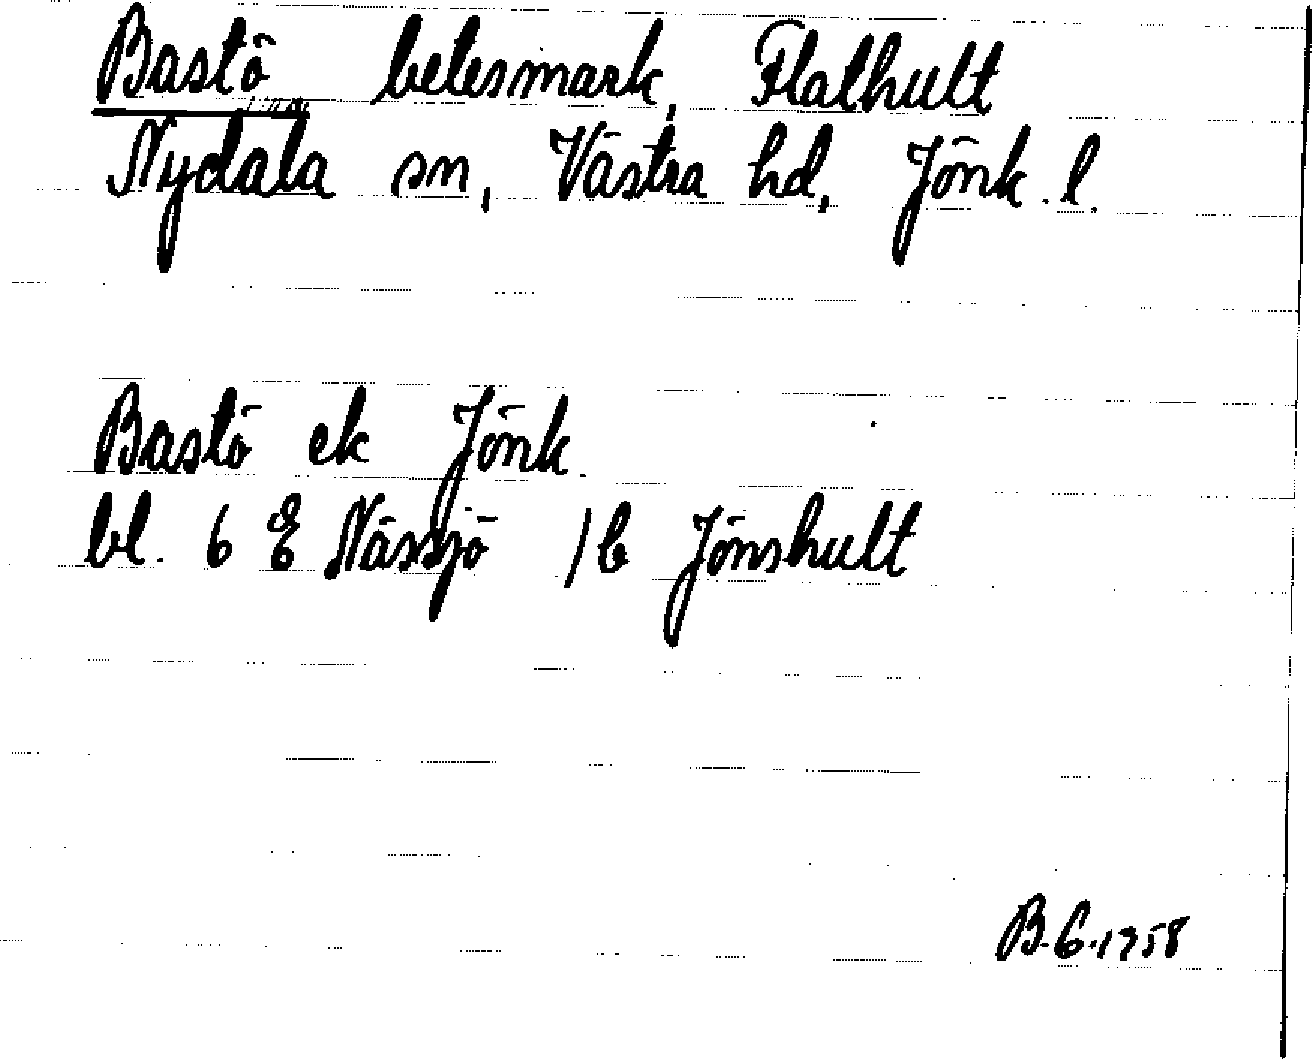 Bastö betesmark, Flathult
Nydala sn, Västra hd, Jönk. l.
Bastö ek Jönk.
bl. 6 E Nässjö / b Jönshult
B.G. 1958